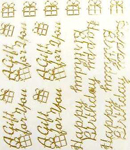 A Gift
For You
A Gift
For You
Happy
Birthday
Happy
Birthday
A Gift
For You
A Gift
For You
Happy
Birthday
Happy
Birthday